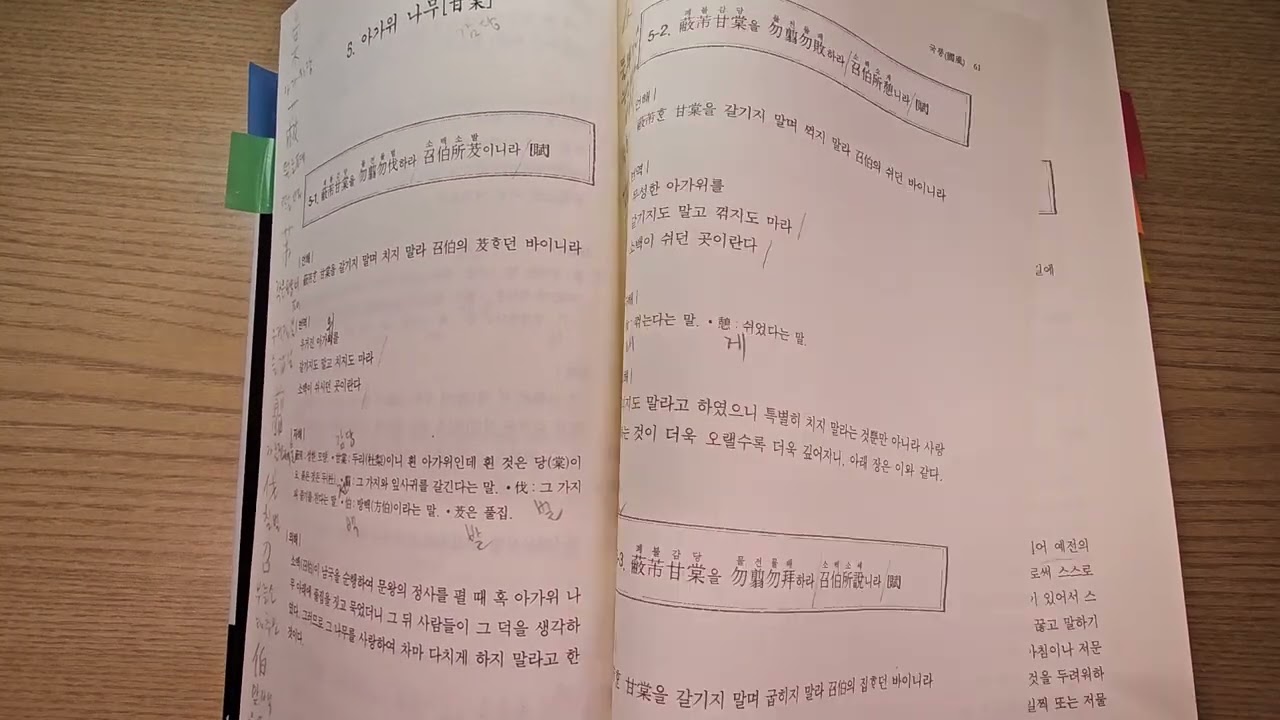 5. 아가위 나무[甘棠]
감당
폐불감당 물전물벌 소백소발
5-1. 蔽芾甘棠을 勿翦勿伐하라 召伯所茇이니라 [賦]
| 언해 |
蔽芾흔 甘棠을 갈기지 말며 치지 말라 召伯의 茇흐던 바이니라
| 번역 |
우거진 아가위를
갈기지도 말고 치지도 마라
소백이 쉬시던 곳이란다
| 자해 |
감당
蔽芾 : 성한 모양. • 甘棠 : 두리(杜梨)이니 흰 아가위인데 흰 것은 당(棠)이
요, 붉은 것은 두(杜). • 翦 : 그 가지와 잎사귀를 갈긴다는 말. • 伐 : 그 가지
와 줄기를 친다는 말. • 伯 : 방백(方伯)이라는 말. • 茇은 풀집.
벌
백
발
| 의해 |
소백(召伯)이 남국을 순행하여 문왕의 정사를 펼 때 혹 아가위 나
무 아래에 풀집을 짓고 묵었더니 그 뒤 사람들이 그 덕을 생각하
였다. 그러므로 그 나무를 사랑하여 차마 다치게 하지 말라고 한
것이다.
국풍(國風) 61
폐불감당 물전물패 소백소게
5-2. 蔽芾甘棠을 勿翦勿敗하라 召伯所憩니라 [賦]
언해 |
蔽芾흔 甘棠을 갈기지 말며 꺽지 말라 召伯의 쉬던 바이니라
번역 |
무성한 아가위를
갈기지도 말고 꺾지도 마라
소백이 쉬던 곳이란다
자해 |
꺾는다는 말. • 憩 : 쉬었다는 말.
게
지도 말라고 하였으니 특별히 치지 말라는 것뿐만 아니라 사랑
는 것이 더욱 오랠수록 더욱 깊어지니, 아래 장은 이와 같다.
폐불감당 물전물배 소백소세
-3. 蔽芾甘棠을 勿翦勿拜하라 召伯所說니라 [賦]
흔 甘棠을 갈기지 말며 굽히지 말라 召伯의 집흐던 바이니라
일에
어 예전의
로써 스스로
있어서 스
끊고 말하기
아침이나 저문
것을 두려워하
일찍 또는 저물